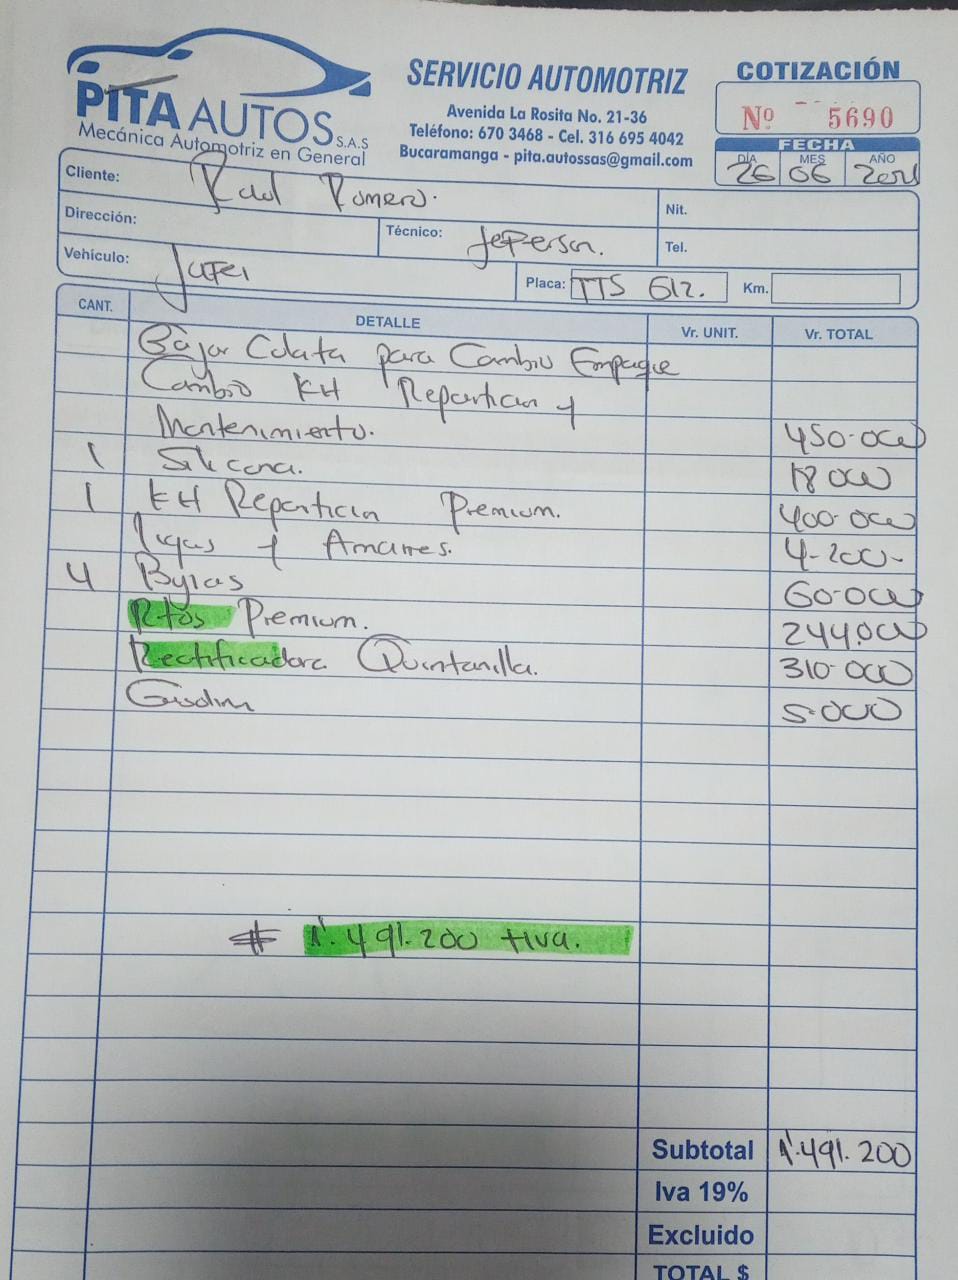 PITA AUTOS S.A.S
Mecánica Automotriz en General
SERVICIO AUTOMOTRIZ
Avenida La Rosita No. 21-36
Teléfono: 670 3468 - Cel. 316 695 4042
Bucaramanga - pita.autossas@gmail.com
COTIZACIÓN
Nº 5690
FECHA
DÍA MES AÑO
26 06
Cliente: Romero.
Nit.
Dirección:
Técnico: Jefferson.
Tel.
Vehículo:
Placa: TTS 612.
Km.
CANT. DETALLE Vr. UNIT. Vr. TOTAL
Bajar Culata para Cambio Empaque
Cambio Kit Reparticion y
Mantenimiento. 450.000
1 Silicona. 18000
1 Kit Reparticion Premium. 400.000
ligas y Amarres. 4-200-
4 Bujias 60.000
Rtos Premium. 244.000
Rectificadora Quintanilla. 310.000
5.000
# 1'.491.200 +iva.
Subtotal 1'.491.200
Iva 19%
Excluido
TOTAL $